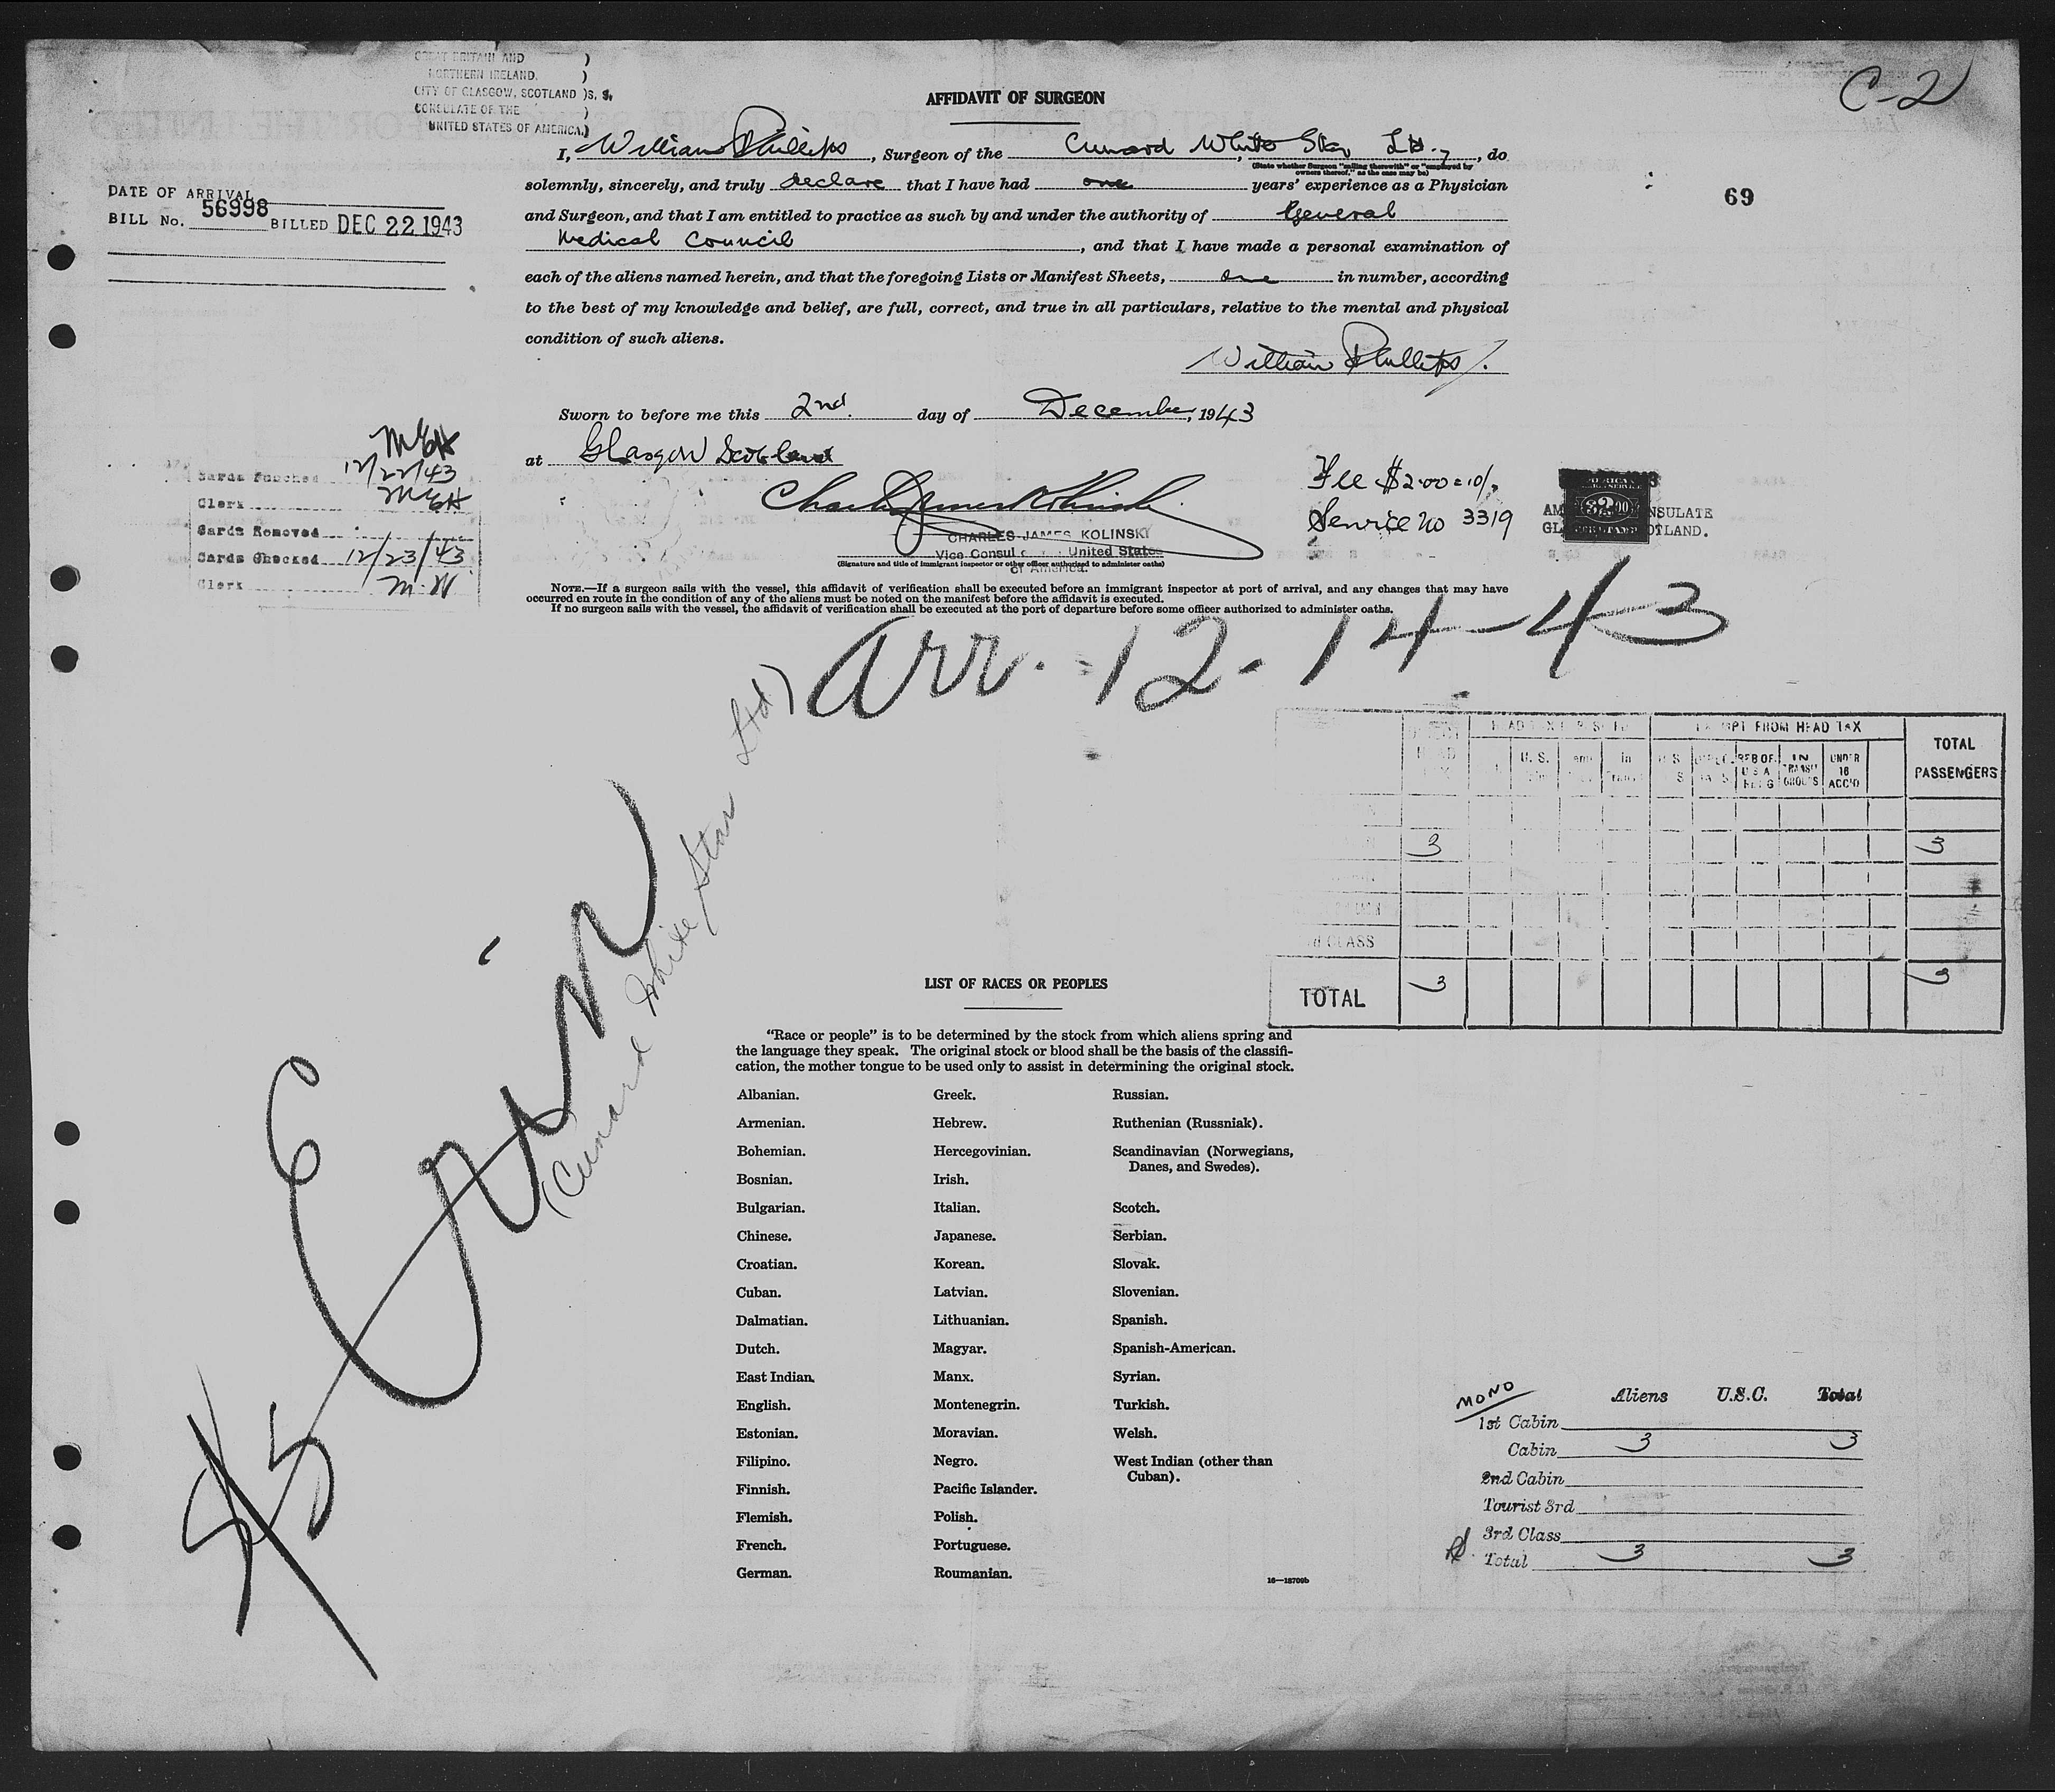 GREAT BRITAIN AND )
NORTHERN IRELAND. )
CITY OF GLASGOW, SCOTLAND )S. S.
CONSULATE OF THE )
UNITED STATES OF AMERICA.)
C-2
AFFIDAVIT OF SURGEON
I, William Phillips, Surgeon of the Cunard White Star Ltd., do
(State whether Surgeon "sailing therewith" or "employed by
owners thereof," as the case may be)
solemnly, sincerely, and truly declare that I have had one years' experience as a Physician
and Surgeon, and that I am entitled to practice as such by and under the authority of General
Medical Council, and that I have made a personal examination of
each of the aliens named herein, and that the foregoing Lists or Manifest Sheets, one in number, according
to the best of my knowledge and belief, are full, correct, and true in all particulars, relative to the mental and physical
condition of such aliens.
William Phillips
DATE OF ARRIVAL
BILL No. 56998 BILLED DEC 22 1943
69
Sworn to before me this 2nd day of December, 1943
at Glasgow Scotland
Charles James Kolinski
CHARLES JAMES KOLINSKI
Vice Consul United States
of America.
(Signature and title of immigrant inspector or other officer authorized to administer oaths)
Fee $2.00 = 10/-
Service No 3319
$2.00
GLASGOW, SCOTLAND.
MEH
Cards Punched 12/22/43
Clerk MEH
Cards Removed
Cards Checked 12/23/43
Clerk M.W
NOTE.—If a surgeon sails with the vessel, this affidavit of verification shall be executed before an immigrant inspector at port of arrival, and any changes that may have
occurred en route in the condition of any of the aliens must be noted on the manifest before the affidavit is executed.
If no surgeon sails with the vessel, the affidavit of verification shall be executed at the port of departure before some officer authorized to administer oaths.
arr. 12-14-43
EXEMPT FROM HEAD TAX
TOTAL
PASSENGERS
U. S.
IN
TRANSIT
UNDER
16
ACC'D
3 3
CLASS
TOTAL 3 3
S/S
(Cunard White Star Ltd)
LIST OF RACES OR PEOPLES
"Race or people" is to be determined by the stock from which aliens spring and
the language they speak. The original stock or blood shall be the basis of the classifi-
cation, the mother tongue to be used only to assist in determining the original stock.
Albanian. Greek. Russian.
Armenian. Hebrew. Ruthenian (Russniak).
Bohemian. Hercegovinian. Scandinavian (Norwegians,
Danes, and Swedes).
Bosnian. Irish.
Bulgarian. Italian. Scotch.
Chinese. Japanese. Serbian.
Croatian. Korean. Slovak.
Cuban. Latvian. Slovenian.
Dalmatian. Lithuanian. Spanish.
Dutch. Magyar. Spanish-American.
East Indian. Manx. Syrian.
English. Montenegrin. Turkish.
Estonian. Moravian. Welsh.
Filipino. Negro. West Indian (other than
Cuban).
Finnish. Pacific Islander.
Flemish. Polish.
French. Portuguese.
German. Roumanian.
16—18709b
MONO
Aliens U.S.C. Total
1st Cabin
Cabin 3 3
2nd Cabin
Tourist 3rd
3rd Class
Total 3 3